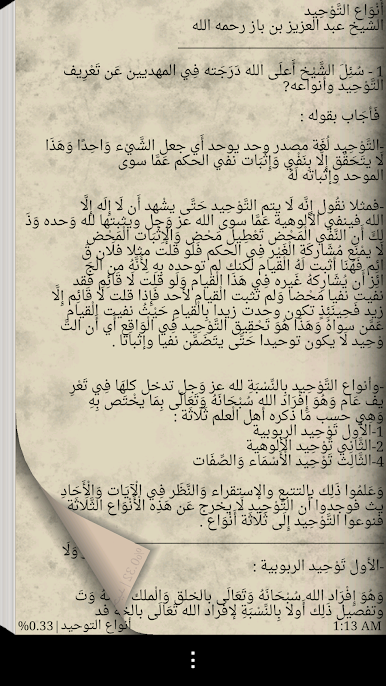 أنْوَاع التَّوْحِيد
الشيخ عبد العزيز بن باز رحمه الله
1 - سُئِلَ الشَّيْخ أَعلَى الله دَرَجَته فِي المهديين عَن تَعْرِيف
التَّوْحِيد وأنواعه?
فَأجَاب بقوله :
-التَّوْحِيد لُغَة مصدر وحد يوحد أَي جعل الشَّيْء وَاحِدًا وَهَذَا
لَا يتَحَقَّق إِلَّا بِنَفْي وَإِثْبَات نفي الحكم عَمَّا سوى
الموحد وإثباته لَهُ
-فمثلا نقُول إِنَّه لَا يتم التَّوْحِيد حَتَّى يشْهد أَن لَا إِلَه إِلَّا
الله فينفي الألوهية عَمَّا سوى الله عز وَجل ويثبتها لله وَحده وَذَ
لِكَ أَن النَّفْي الْمَحْض تَعْطِيل مَحْض وَالْإِثْبَات الْمَحْض
لَا يمْنَع مُشَاركَة الْغَيْر فِي الحكم فَلَو قلت مثلا فلَان قَ
ائِم فَهُنَا أثبت لَهُ الْقيام لكنك لم توحده بِهِ لِأَنَّهُ من الْجَ
ائِز أَن يُشَارِكهُ غَيره فِي هَذَا الْقيام وَلَو قلت لَا قَائِم فقد
نفيت نفيا مَحْضا وَلم تثبت الْقيام لأحد فَإِذا قلت لَا قَائِم إِلَّا
زيد فَحِينَئِذٍ تكون وحدت زيدا بِالْقيامِ حَيْثُ نفيت الْقيام
عَمَّن سواهُ وَهَذَا هُوَ تَحْقِيق التَّوْحِيد فِي الْوَاقِع أَي أَن التَّ
وْحِيد لَا يكون توحيدا حَتَّى يتَضَمَّن نفيا وإثباتا .
-وأنواع التَّوْحِيد بِالنِّسْبَةِ لله عز وَجل تدخل كلهَا فِي تَعْرِ
يف عَام وَهُوَ إِفْرَاد الله سُبْحَانَهُ وَتَعَالَى بِمَا يخْتَص بِهِ
وَهِي حسب مَا ذكره أهل الْعلم ثَلَاثَة :
1-الأول تَوْحِيد الربوبية
2-الثَّانِي تَوْحِيد الألوهية
4-الثَّالِث تَوْحِيد الْأَسْمَاء وَالصِّفَات
وَعَلمُوا ذَلِك بالتتبع والاستقراء وَالنَّظَر فِي الْآيَات وَالْأَحَادِ
يث فوجدوا أَن التَّوْحِيد لَا يخرج عَن هَذِه الْأَنْوَاع الثَّلَاثَة
فنوعوا التَّوْحِيد إِلَى ثَلَاثَة أَنْوَاع .
وَلَا
-الأول تَوْحِيد الربوبية :
وَهُوَ إِفْرَاد الله سُبْحَانَهُ وَتَعَالَى بالخلق وَالْملك
وتفصيل ذَلِك أَولا بِالنِّسْبَةِ لإفراد الله تَعَالَى بالخ قد
1:13 AM أنواع التوحيد | 0.33%